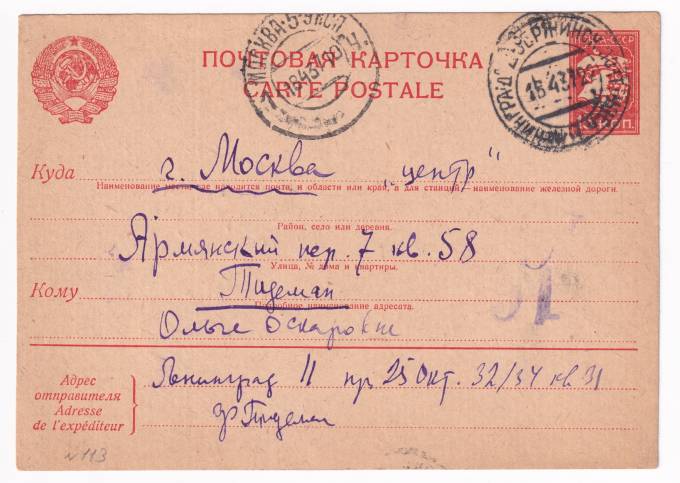 ПОЧТОВАЯ КАРТОЧКА
CARTE POSTALE
МОСКВА·5·ЭКСП
Куда г. Москва „центр"
Наименование места, где находится почта, и области или края, а для станций – наименование железной дороги.
Район, село или деревня.
Армянский пер. 7 кв. 58
Улица, № дома и квартиры.
Кому Тидеман
Подробное наименование адресата.
Ольге Оскаровне
Адрес отправителя
Adresse de l'expéditeur
Ленинград 11 пр 25 Окт. 32/34 кв 31
Тидеман
№113